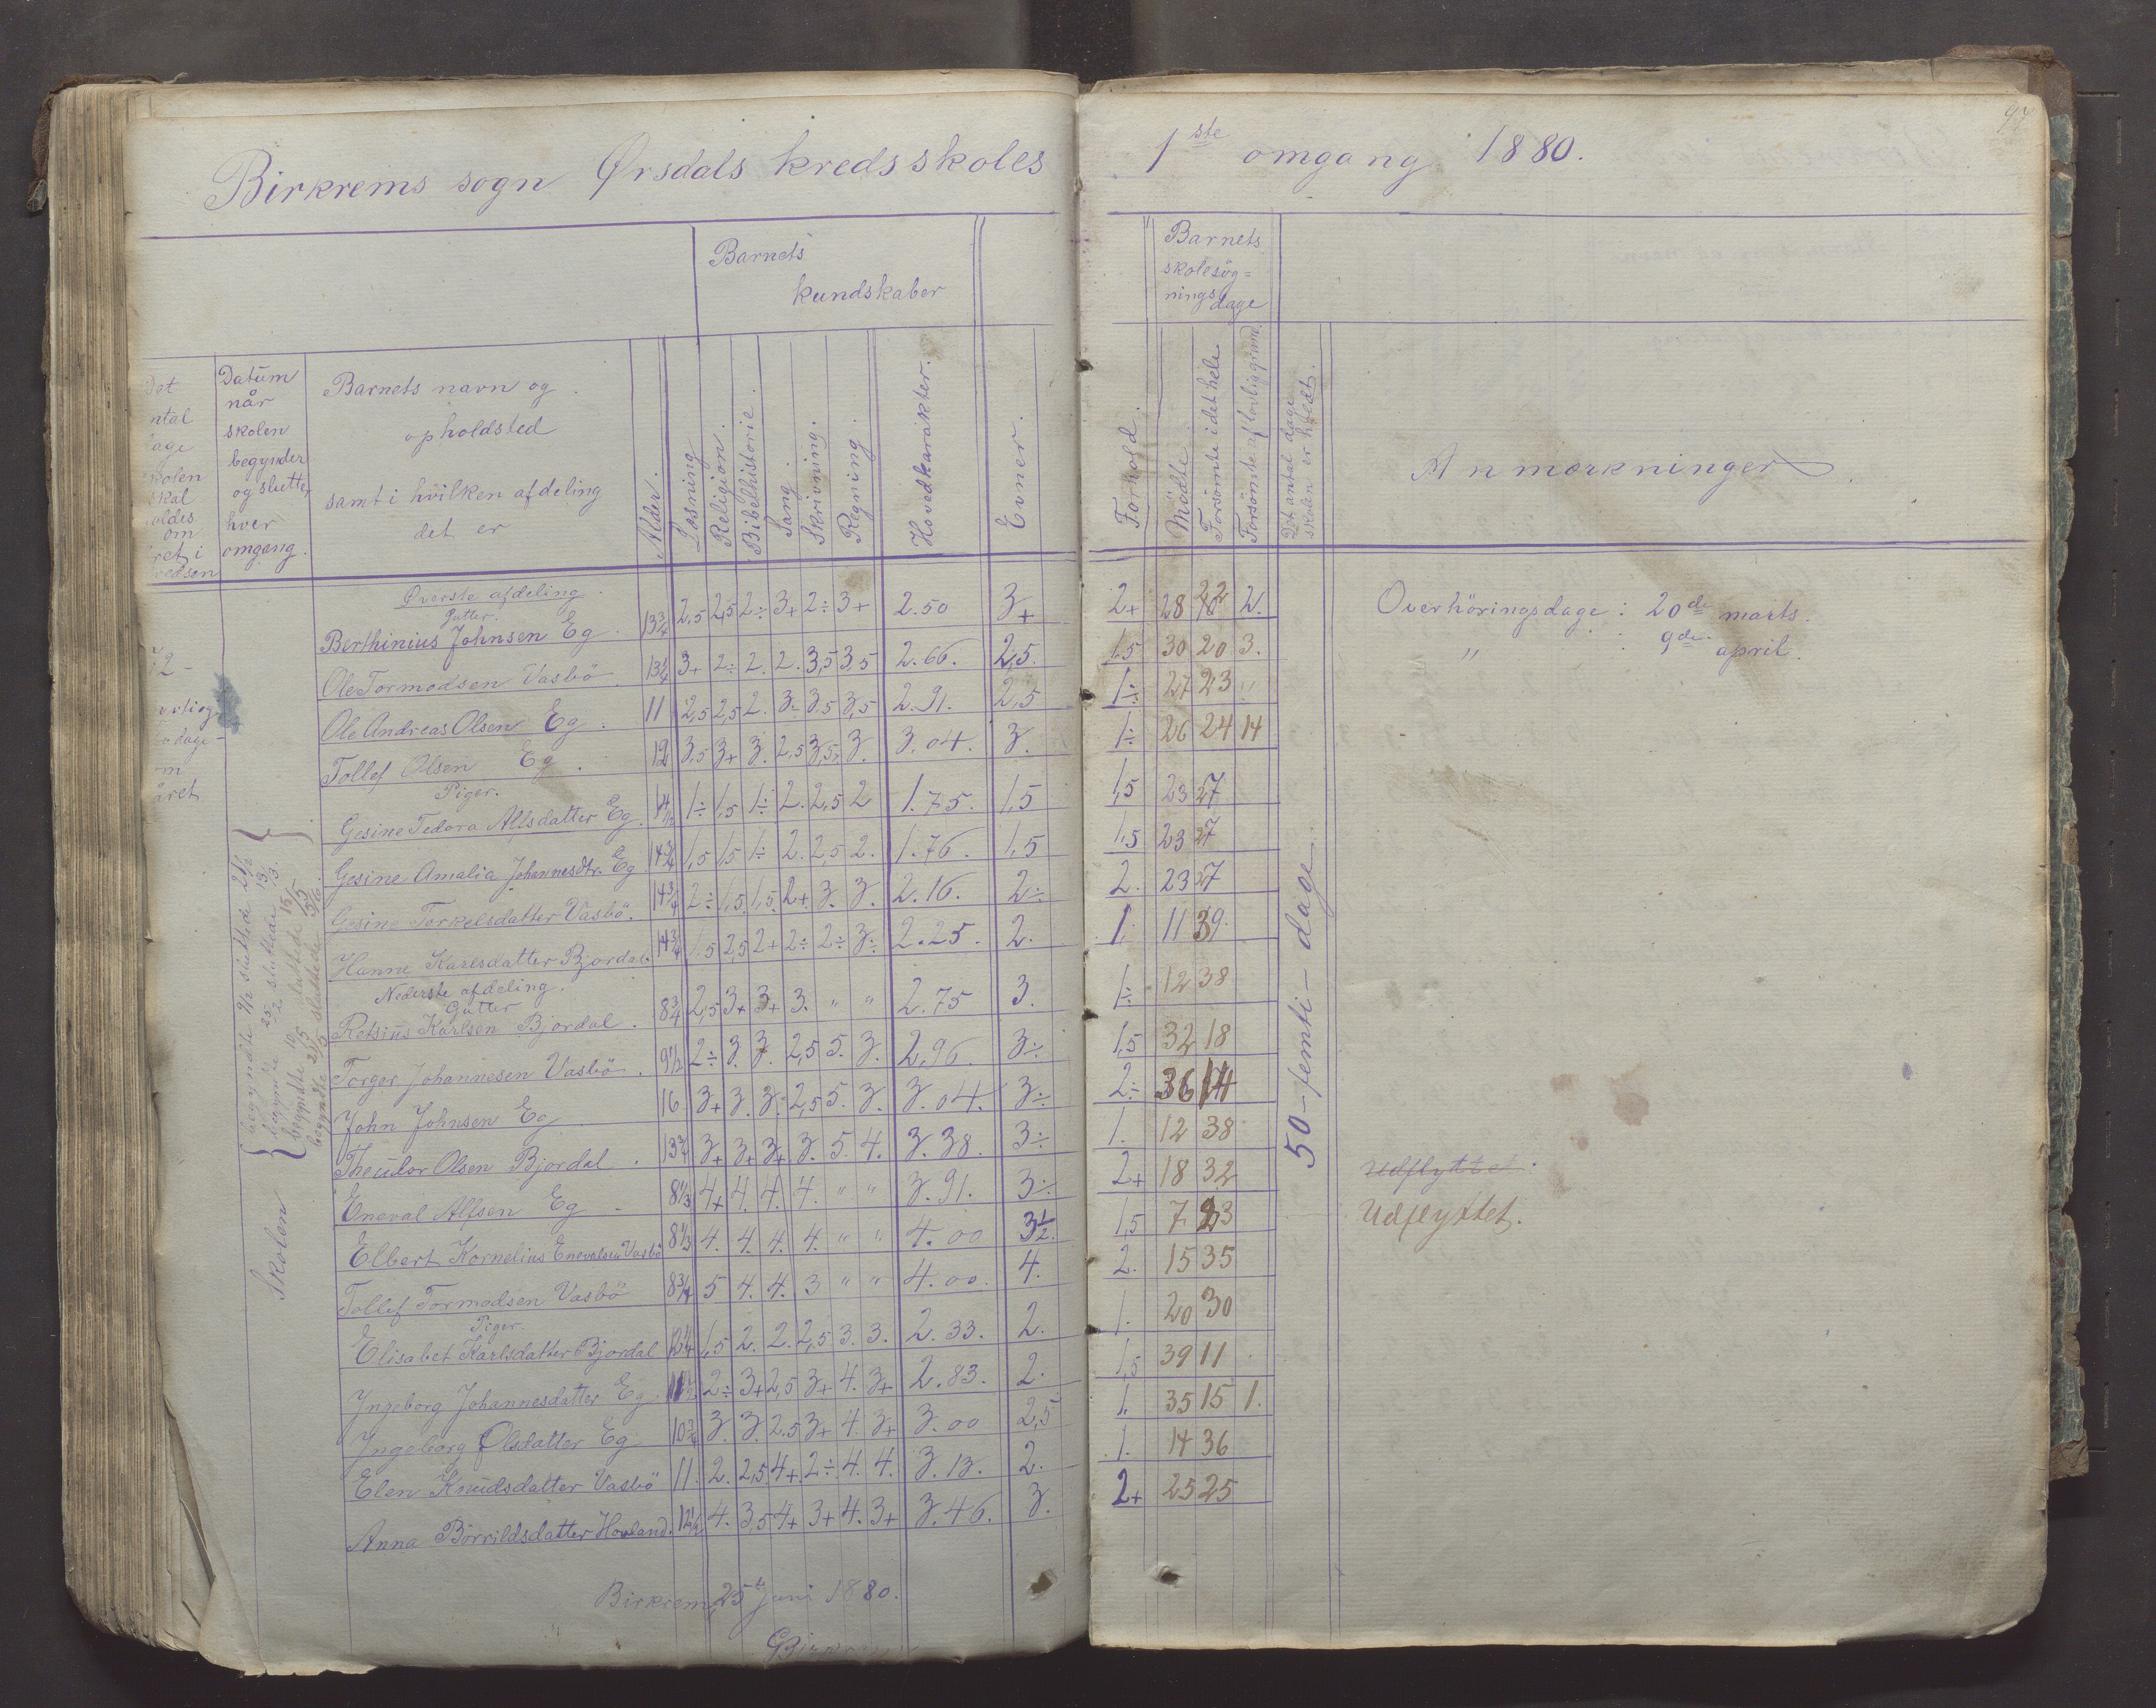 Birkrems sogn Ørsdals kredsskoles
Barnets
kundskaber
Det
ntal
age
skolen
skal
oldes
om
ret i
Datum
når
skolen
begynder
og slutter
hver
omgang.
Barnets navn og
opholdsted
samt i hvilken afdeling
det er
Alder.
Læsning
Religion.
Bibelhistorie.
Sang.
Skrivning.
Regning.
Hovedkarakter.
Evner.
Øverste afdeling
Gutter.
Berthinius Johnsen Eg 13¾ 2,5 2,5 2÷ 3+ 2÷ 3+ 2.50 3+
Ole Tormodsen Vasbö 13¼ 3+ 2÷ 2. 2. 3,5 3,5 2.66. 2,5.
Ole Andreas Olsen Eg 11 2,5 2,5 2. 3. 3.5 3,5 2.91. 2,5
Tollef Olsen Eg 12 3,5 3+ 3. 2,5 3,5 3. 3.04. 3.
Piger.
Gesine Tedora Alfsdatter Eg. 1÷ 1,5 1÷ 2. 2,5 2 1.75. 1,5
Gesine Amalia Johannesdtr. Eg 14¾ 1,5 1,5 1÷ 2. 2,5 2. 1.76. 1,5
Gesine Torkelsdatter Vasbö. 14¾ 2÷ 1,5 1,5 2+ 3. 3. 2.16. 2÷
Hanne Karlsdatter Bjordal. 14¾ 1.5 2,5 2+ 2÷ 2÷ 3÷ 2.25. 2.
Nederste afdeling.
Gutter
Retsius Karlsen Bjordal. 8¾ 2,5 3+ 3+ 3. " " 2.75 3.
Torger Johannesen Vasbö. 9½ 2÷ 3. 3. 2,5 5. 3. 2.96. 3÷
John Johnsen Eg 16 3+ 3. 3. 2,5 5. 3. 3.04. 3÷
Theodor Olsen Bjordal. 13¾ 3+ 3+ 3+ 3. 5. 4. 3.38. 3÷
Eneval Alfsen Eg 8⅓ 4+ 4. 4. 4. " " 3.91. 3÷
Elbert Kornelius Enevalsen Vasbö 8⅓ 4. 4. 4. 4. " " 4.00 3½.
Tollef Tormodsen Vasbö 8¾ 5 4. 4. 3 " " 4.00. 4.
Piger.
Elisabet Karlsdatter Bjordal 1,5 2. 2. 2,5 3. 3. 2.33. 2.
Ingeborg Johannesdatter Eg. 11½ 2÷ 3+ 2,5 3+ 4. 3+ 2.83. 2.
Ingeborg Olsdatter Eg 10¾ 3. 3. 2.5 3+ 4. 3+ 3.00 2,5
Elen Knudsdatter Vasbö 11. 2. 2,5 4+ 2÷ 4. 4. 3.13. 2.
Anna Börrildsdatter Hovland. 12½ 4. 3,5 4+ 3+ 4. 3+ 3.46. 3.
72
dage
året
Skolen
begyndte 9/2 sluttede 21/2
begyndte 25/2 sluttede 13/3.
begyndte 10/5 sluttede 15/5
begyndte sluttede
Birkrem, 25 Juni 1880.
97
1ste omgang 1880.
Barnets
skolesög=
nings
dage
Forhold.
Mödte.
Forsömte i det hele
Forsömte af lovlig grund.
Det antal dage
skolen er holdt.
Anmærkninger
2+ 28 22 2.
1,5 30 20 3.
1÷ 27 23 "
1÷ 26 24 14
1,5 23 27
1,5 23 27
2. 23 27
1. 11 39.
1÷ 12 38
1,5 32 18
2÷ 36 14
1. 12 38
2+ 18 32
1,5 7. 23
2. 15 35
1. 20 30
1,5 39 11
1. 35 15 1.
1. 14 36
2+ 25 25
50 – femti – dage.
Overhöringsdage: 20de marts.
" : 9de april.
Udflyttet.
Udflyttet.